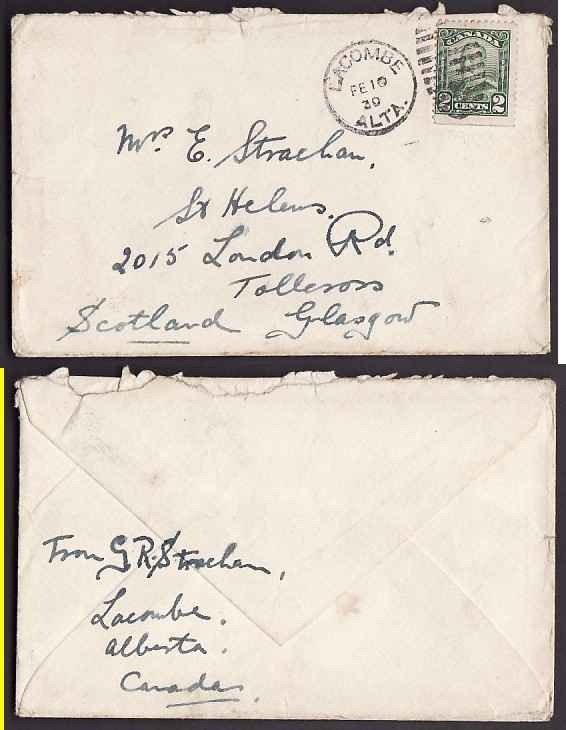 LACOMBE
FE 10
30
ALTA.
CANADA
2 CENTS 2
Mrs E. Strachan,
St Helens.
2015 London Rd.
Tollcross
Scotland Glasgow
From G R. Strachan,
Lacombe.
Alberta.
Canada.